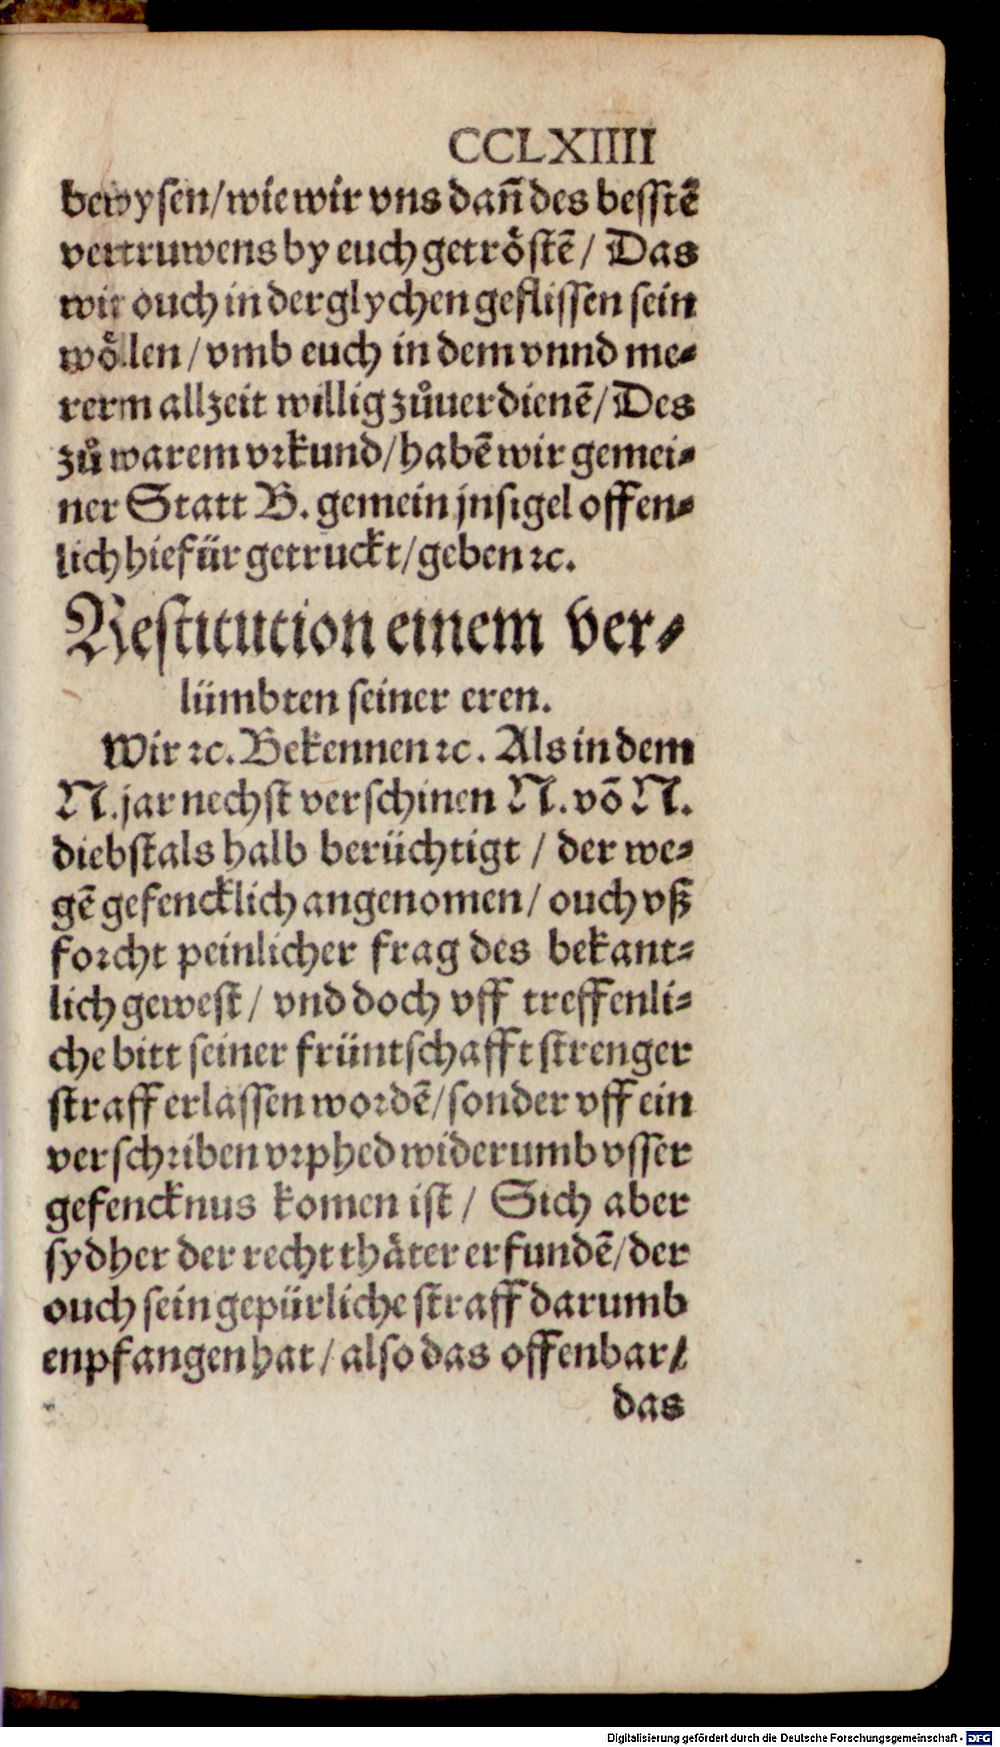 CCLXIIII
bewysen/wie wir vns dañ des besstē
vertruwens by euch getrőstē/ Das
wir ouch in der glychen geflissen sein
wőllen/vmb euch in dem vnnd me-
rerm allzeit willig zůuerdienē/Des
zů warem vrkund/habē wir gemei-
ner Statt B. gemein jnsigel offen-
lich hiefür getruckt/geben ꝛc.
Restitution einem ver-
lümbten seiner eren.
Wir ꝛc. Bekennen ꝛc. Als in dem
N. jar nechst verschinen N. vō N.
diebstals halb berüchtigt / der we-
gē gefencklich angenomen/ ouch vß
forcht peinlicher frag des bekant-
lich gewest/ vnd doch vff treffenli-
che bitt seiner früntschafft strenger
straff erlassen wordē/sonder vff ein
verschriben vrphed widerumb vsser
gefencknus komen ist/ Sich aber
sydher der recht thäter erfundē/der
ouch sein gepürliche straff darumb
enpfangen hat/also das offenbar/
das
Digitalisierung gefördert durch die Deutsche Forschungsgemeinschaft - DFG